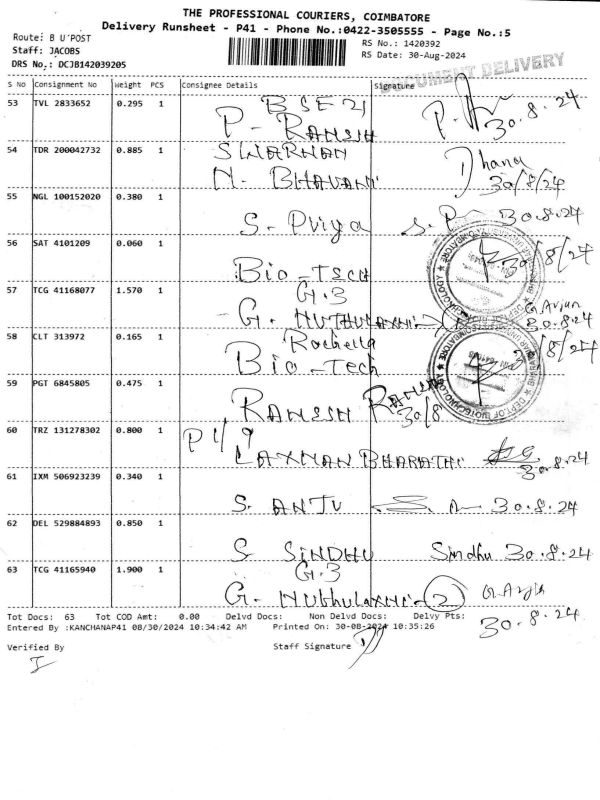 THE PROFESSIONAL COURIERS, COIMBATORE
Delivery Runsheet - P41 - Phone No.:0422-3505555 - Page No.:5
Route: B U'POST
RS No.: 1420392
Staff: JACOBS
RS Date: 30-Aug-2024
DRS No.: DCJB142039205
DOCUMENT DELIVERY
S No Consignment No Weight PCS Consignee Details Signature
53 TVL 2833652 0.295 1 BSE 21
P. RANSIH 30.8.24
54 TDR 200042732 0.885 1 SWARNAN
N. BHAVANI Dhana 30/8/24
55 NGL 100152020 0.380 1
S. Priya S. P 30.8.24
56 SAT 4101209 0.060 1
BIO-TECH 30/8/24
57 TCG 41168077 1.570 1 G.3
G. MUTHULAXMI G. Arjun 30.8.24
58 CLT 313972 0.165 1
Bio-Tech /8/24
59 PGT 6845805 0.475 1
RAMESH 30/8
60 TRZ 131278302 0.800 1 P1/9
LAXMAN BHARATHI 30.8.24
61 IXM 506923239 0.340 1
S. ANJU 30.8.24
62 DEL 529884893 0.850 1
S. SINDHU Sindhu 30.8.24
63 TCG 41165940 1.900 1 G.3
G. Muthulaxmi 2 G. Arju
30.8.24
Tot Docs: 63 Tot COD Amt: 0.00 Delvd Docs: Non Delvd Docs: Delvy Pts:
Entered By :KANCHANAP41 08/30/2024 10:34:42 AM Printed On: 30-08-2024 10:35:26
Verified By Staff Signature